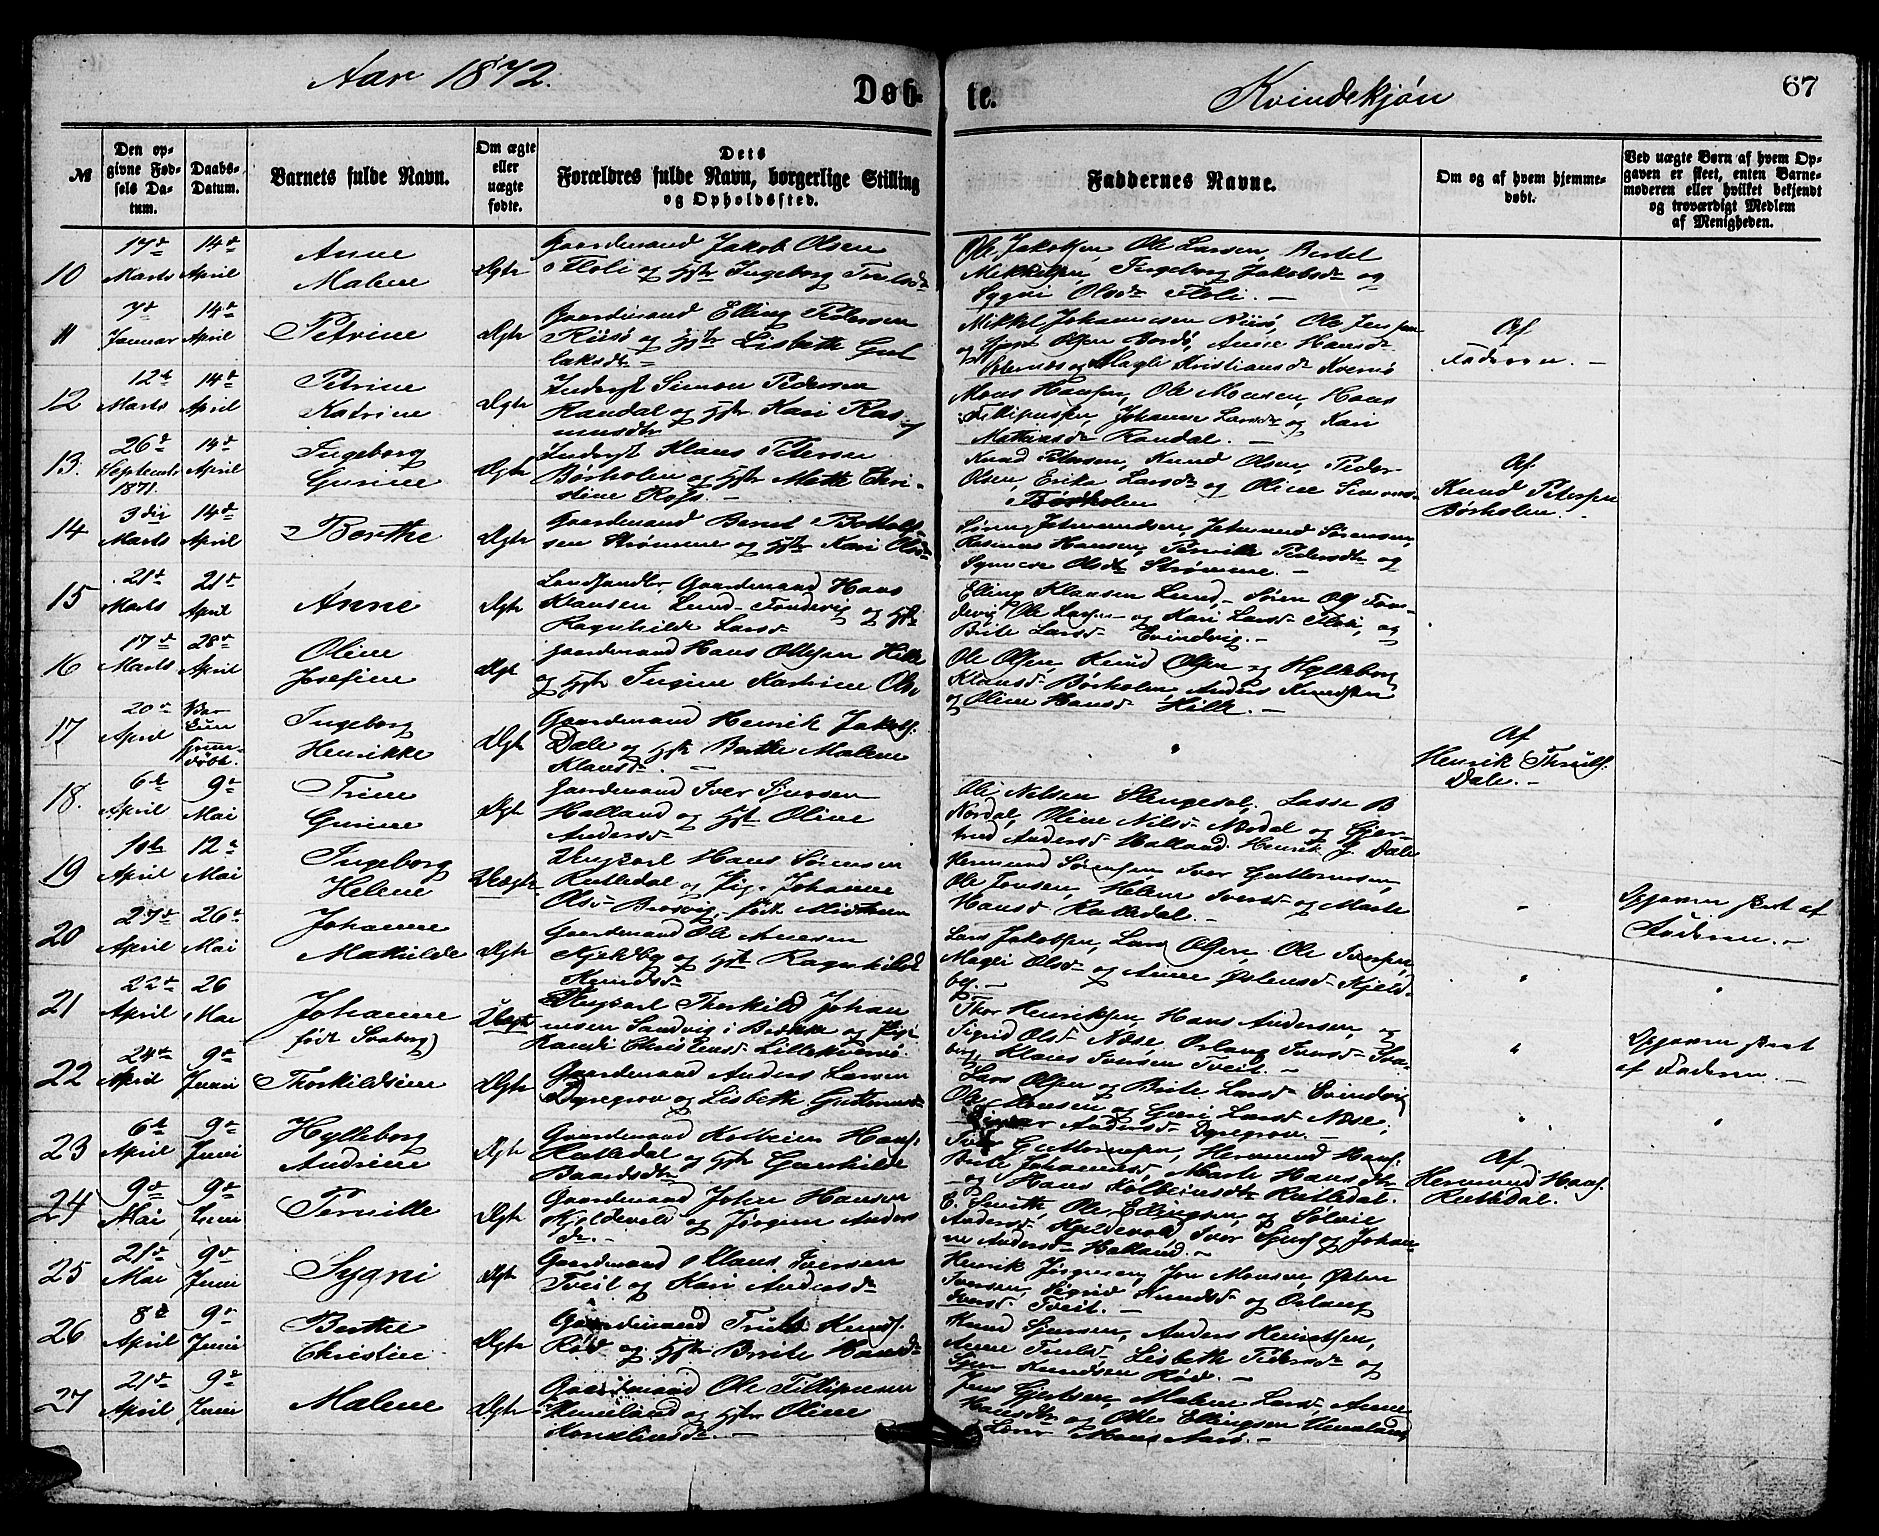 Aar 1872.
Døb-
te.
Kvindekjøn
67
№
Den op-
givne Fød-
sels Da-
tum.
Daabs-
Datum.
Barnets fulde Navn.
Om ægte
eller
uægte
fødte.
Dets
Forældres fulde Navn, borgerlige Stilling
og Opholdssted.
Faddernes Navne.
Om og af hvem hjemme-
døbt.
Ved uægte Børn af hvem Op-
gaven er skeet, enten Barne-
moderen eller hvilket bekjendt
og troværdigt Medlem
af Menigheden.
10
17de
Marts
14de
April
Anne
Malene
Ægte
Gaardmand Jakob Olsen
Floli og Hstr Ingeborg
Ole Jakobsen, Ole Larsen, Bertel
Mikkelsen, Ingeborg Jakobsdtr og
Sygni Olsdtr Floli. –
11
7de
Januar
14de
April
Petrine
Ægte
Gaardmand Elling Pedersen
Risø og Hstr Lisbeth Gut
laksdtr –
Mikkel Johannesen Ole
og Olsen Bordø, Anne Hansdtr
og Magli Kristiansdtr Kversø
Af
Faderen. –
12
12te
Marts
14de
April
Petrine
Katrine
Ægte
Inderst Simon Pedersen
Randal og Hstr Kari Ras-
musdtr
Mons Hansen, Ole Monsen, Hans
Johanne Larsdtr og Kari
Mathiasdtr Randal. –
13.
26de
Septembr
1871.
14de
April
Ingeborg
Gurine
Ægte
Inderst Klaus Petersen
Børholen og Hstr Mette Chri-
stine –
Knud Petersen, Knud Olsen, Peder
Olsen, Erike Larsdtr og Oline
Børholen
Af
Knud Petersen
Børholen. –
14
3die
Marts
14de
April
Berthe
Ægte
Gaardmand Bernt Bottolf
sen Strømme og Hstr Kari Olsdtr
Søren Jetmundsen, Jetmund Sørensen,
Rasmus Hansen, Pernille Pedersdtr og
Synneve Olsdtr Strømme. –
15
21de
Marts
21de
April
Anne
Ægte
Landhandler, Gaardmand Hans
Klausen Lund – Fondevig og Hstr
Ragnhilde Larsdtr
Elling Klausen Lund, Søren Ols Fon-
devig Ole Larsen og Kari Larsdtr Floli, og
Brite Larsdtr Evindvig. –
16
17de
Marts
28de
April
Oline
Josefine
Ægt
Gaardmand Hans Ottesen Hille
og Hstr Ingine Katrine Ols
Ole Olsen, Knud Olsen og Hylleborg
Klausdtr Børholen, Anders Knudsen
og Oline Hansdtr Hille. –
17
20de
April
Var
kun
hjem-
døbt.
Ingeborg
Henrikke
Ægte
Gaardmand Henrik Jakobs.
Dale og Hstr Berthe Malene
Klausdtr. –
"
Af
Henrik Thruls.
Dale. –
18.
6te
April
9de
Mai
Trine
Gurine
Ægte
Gaardmand Iver Sjursen
Halland og Hstr Oline
Andersdtr
Ole Nelsen Slengesol. Lasse B
Nordal, Oline Nilsdtr Nordal og Gjer-
trud Andersdtr Halland. Henrik J. Dale
19
10de
April
12te
Mai
Ingeborg
Helene
Uægte
Ungkarl Hans Sørensen
Rutledal og Pige Johanne
Olsdtr født
Hermund Sørensen, Iver Guttormsen,
Ole Jonsen, Helene Iversdtr og Marte
Hansdtr Rutledal. –
"
Opgaven skeet af
Faderen. –
20
27de
April
26de
Mai
Johanne
Mathilde
Ægte
Gaardmand Ole Arnesen
Kjeldby og Hstr Ragnhild
Knudsdtr
Lars Jakobsen, Lars Olsen, Ole Iversen,
Magli Olsdtr og Anne Østensdtr Kjeld-
by. –
"
"
21
22de
April
26
Mai
Johanne
født Svaberg)
Uægte
Ungkarl Thorkild Johan
nesen Sandvig i Brekke og Pige
Randi Christensdtr Lillekversø.
Thor Henriksen, Hans Andersen, og
Sigrid Olsdtr Næse, Orlaug Iversdtr Sva-
berg, Klaus Iversen Tveit. –
"
Opgaven skeet
af Faderen. –
22
24de
April
9de
Juni
Thorkildsine
Ægte
Gaardmand Anders Larsen
Dyregrov og Lisbeth Guttormsdtr
Lars Olsen og Brite Larsdtr Evindvig
Ole Monsen og Guri Larsdtr Næse,
Andersdtr Dyregrov. –
"
"
23
6te
April
9de
Juni
Hylleborg
Andrine
Ægte
Gaardmand Kolbein Hans.
Rutledal og Hstr Gunhilde
Baardsdtr
Iver Guttormsen, Hermund Hans.
Brite Johannesdtr, Marte Hansdtr
og Hans Kolbeinsdtr Rutledal.
Af
Hermund Hans.
Rutledal.
24
9de
Mai
9de
Juni
Pernille
Ægte
Gaardmand John Hansen
Kjeldevold og Jørgine Anders
dtr. –
E. Smith, Ole Ellingsen, og Sølvie
Andersdtr Kjeldevold, Iver Sjurs og Johan-
ne Andersdtr Halland. –
25
21de
Mai
9de
Juni
Sygni
Ægte
Gaardmand Klaus Iversen
Tveit og Kari Andersdtr
Henrik Jørgensen, Jon Monsen, Østen
Iversen, Sigrid og Orlaug
Iversdtr Tveit. –
26
8de
April
9de
Juni
Berthe
Christine
Ægte
Gaardmand Truls Knuds.
Rød og Hstr Brite Hansdtr
Knud Sjursen, Anders Henriksen,
Anne Trulsdtr Lisbeth Pedersdtr og
Sjur Knudsen Rød. –
27
21de
April
9de
Juni
Malene
Ægte
Gaardmand Ole Fillipusen
Hemeland og Hstr Oline
–
Jens Gjertsen, Malene Larsdtr, Anne
Hansdtr og Otto Ellingsen Hemeland,
Mons Aarø. –